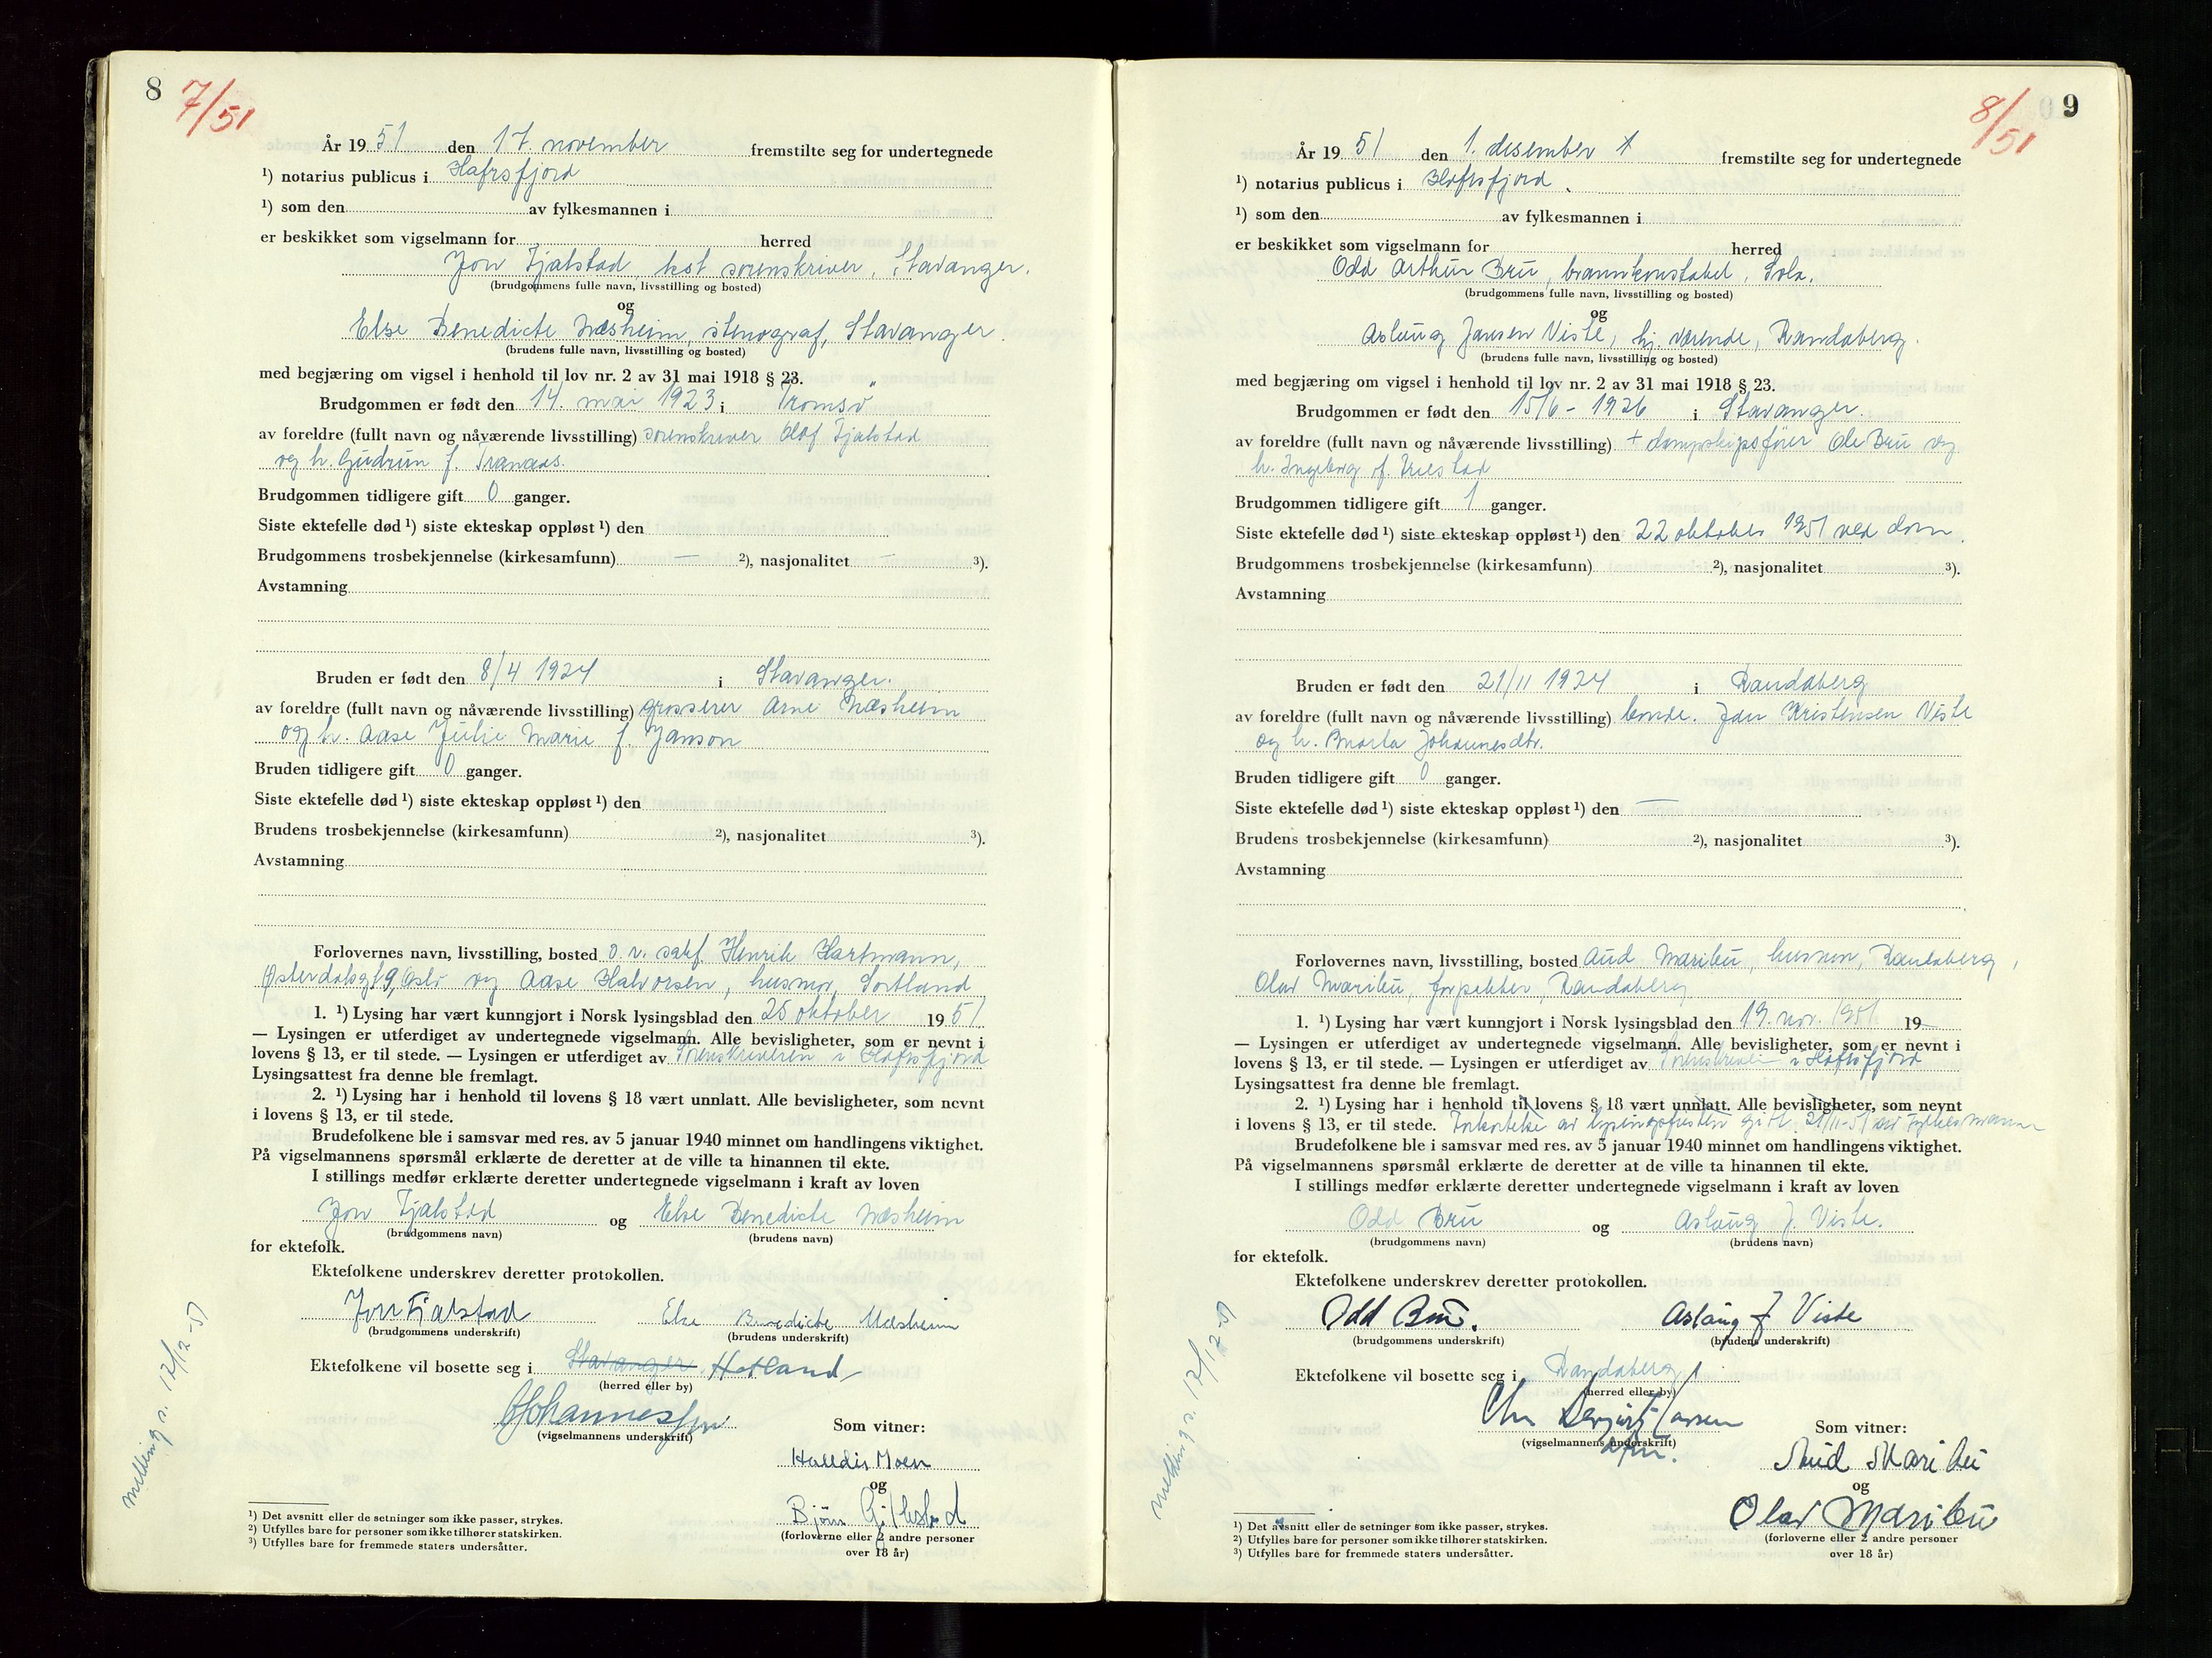 8
7/51
År 19 51 den 17. november fremstilte seg for undertegnede
¹) notarius publicus i Hafrsfjord
¹) som den av fylkesmannen i
er beskikket som vigselmann for herred
Jon Fjalstad, kst sorenskriver, Stavanger.
(brudgommens fulle navn, livsstilling og bosted)
og
Else Benedicte Næsheim, stenograf, Stavanger.
(brudens fulle navn, livsstilling og bosted)
med begjæring om vigsel i henhold til lov nr. 2 av 31 mai 1918 § 23.
Brudgommen er født den 14. mai 1923 i Tromsø
av foreldre (fullt navn og nåværende livsstilling) sorenskriver Olof Fjalstad
og h. Gudrun f. Tranaas.
Brudgommen tidligere gift 0 ganger.
Siste ektefelle død ¹) siste ekteskap oppløst ¹) den
Brudgommens trosbekjennelse (kirkesamfunn) — ²), nasjonalitet — ³).
Avstamning
Bruden er født den 8/4 1924 i Stavanger.
av foreldre (fullt navn og nåværende livsstilling) grosserer Arne Næsheim
og h. Aase Julie Marie f. Janson
Bruden tidligere gift 0 ganger.
Siste ektefelle død ¹) siste ekteskap oppløst ¹) den
Brudens trosbekjennelse (kirkesamfunn) ²), nasjonalitet ³).
Avstamning
Forlovernes navn, livsstilling, bosted o.r. sakf. Henrik Hartmann,
Østerdalsgt 9, Oslo og Aase Halvorsen, husmor, Sortland
1. ¹) Lysing har vært kunngjort i Norsk lysingsblad den 25 oktober 19 51
— Lysingen er utferdiget av undertegnede vigselmann. Alle bevisligheter, som er nevnt i
lovens § 13, er til stede. — Lysingen er utferdiget av Sorenskriveren i Hafrsfjord
Lysingsattest fra denne ble fremlagt.
2. ¹) Lysing har i henhold til lovens § 18 vært unnlatt. Alle bevisligheter, som nevnt
i lovens § 13, er til stede.
Brudefolkene ble i samsvar med res. av 5 januar 1940 minnet om handlingens viktighet.
På vigselmannens spørsmål erklærte de deretter at de ville ta hinannen til ekte.
I stillings medfør erklærte deretter undertegnede vigselmann i kraft av loven
Jon Fjalstad og Else Benedicte Næsheim
(brudgommens navn) (brudens navn)
for ektefolk.
Ektefolkene underskrev deretter protokollen.
Jon Fjalstad Else Benedicte Næsheim
(brudgommens underskrift) (brudens underskrift)
Ektefolkene vil bosette seg i Stavanger Hetland
(herred eller by)
Johannessen
(vigselmannens underskrift)
Som vitner:
Halldis Moen
og
Bjørn Gillestad
(forloverne eller 2 andre personer
over 18 år)
melding s. 12/12-51
¹) Det avsnitt eller de setninger som ikke passer, strykes.
²) Utfylles bare for personer som ikke tilhører statskirken.
³) Utfylles bare for fremmede staters undersåtter.
9
8/51
År 19 51 den 1. desember fremstilte seg for undertegnede
¹) notarius publicus i Hafrsfjord.
¹) som den av fylkesmannen i
er beskikket som vigselmann for herred
Odd Arthur Bru, brannkonstabel, Sola.
(brudgommens fulle navn, livsstilling og bosted)
og
Aslaug Jansen Viste, hj. værende, Randaberg.
(brudens fulle navn, livsstilling og bosted)
med begjæring om vigsel i henhold til lov nr. 2 av 31 mai 1918 § 23.
Brudgommen er født den 15/6 - 1926 i Stavanger.
av foreldre (fullt navn og nåværende livsstilling) + dampskipsfører Ole Bru og
h. Ingeborg f.
Brudgommen tidligere gift 1 ganger.
Siste ektefelle død ¹) siste ekteskap oppløst ¹) den 22 oktober 1951 ved dom.
Brudgommens trosbekjennelse (kirkesamfunn) ²), nasjonalitet ³).
Avstamning
Bruden er født den 21/11 1924 i Randaberg
av foreldre (fullt navn og nåværende livsstilling) bonde. Jan Kristensen Viste
og h. Marta Johannesdtr.
Bruden tidligere gift 0 ganger.
Siste ektefelle død ¹) siste ekteskap oppløst ¹) den —
Brudens trosbekjennelse (kirkesamfunn) ²), nasjonalitet ³).
Avstamning
Forlovernes navn, livsstilling, bosted Aud Maribu, husmor, Randaberg,
Olav Maribu, forpakter, Randaberg
1. ¹) Lysing har vært kunngjort i Norsk lysingsblad den 19. nov. 1951 19—
— Lysingen er utferdiget av undertegnede vigselmann. Alle bevisligheter, som er nevnt i
lovens § 13, er til stede. — Lysingen er utferdiget av Sorenskriveren i Hafrsfjord
Lysingsattest fra denne ble fremlagt.
2. ¹) Lysing har i henhold til lovens § 18 vært unnlatt. Alle bevisligheter, som nevnt
i lovens § 13, er til stede. Forkortelse av lysingsfristen gitt 21/11-51 av Fylkesmann
Brudefolkene ble i samsvar med res. av 5 januar 1940 minnet om handlingens viktighet.
På vigselmannens spørsmål erklærte de deretter at de ville ta hinannen til ekte.
I stillings medfør erklærte deretter undertegnede vigselmann i kraft av loven
Odd Bru og Aslaug J. Viste.
(brudgommens navn) (brudens navn)
for ektefolk.
Ektefolkene underskrev deretter protokollen.
Odd Bru. Aslaug J Viste
(brudgommens underskrift) (brudens underskrift)
Ektefolkene vil bosette seg i Randaberg
(herred eller by)
Chr
(vigselmannens underskrift)
Som vitner:
Aud Maribu
og
Olav Maribu
(forloverne eller 2 andre personer
over 18 år)
melding s. 12/12-51
¹) Det avsnitt eller de setninger som ikke passer, strykes.
²) Utfylles bare for personer som ikke tilhører statskirken.
³) Utfylles bare for fremmede staters undersåtter.